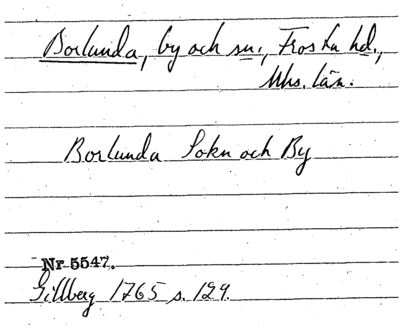 Borlunda, by och sn., Frosta hd.,
Mhs. län.
Borlunda Sokn och By
Nr 5547.
Gillberg 1765 s. 129.